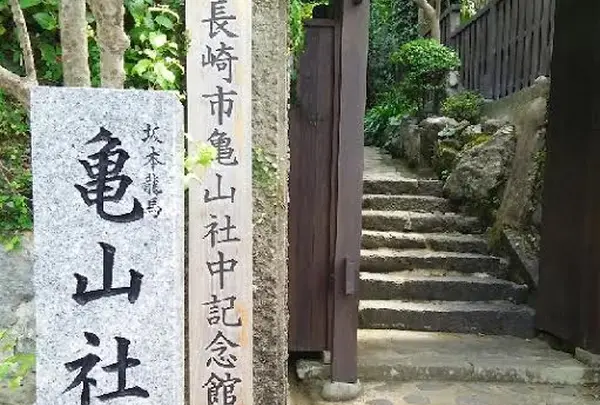 長崎市亀山社中記念館
坂本龍馬
亀山社